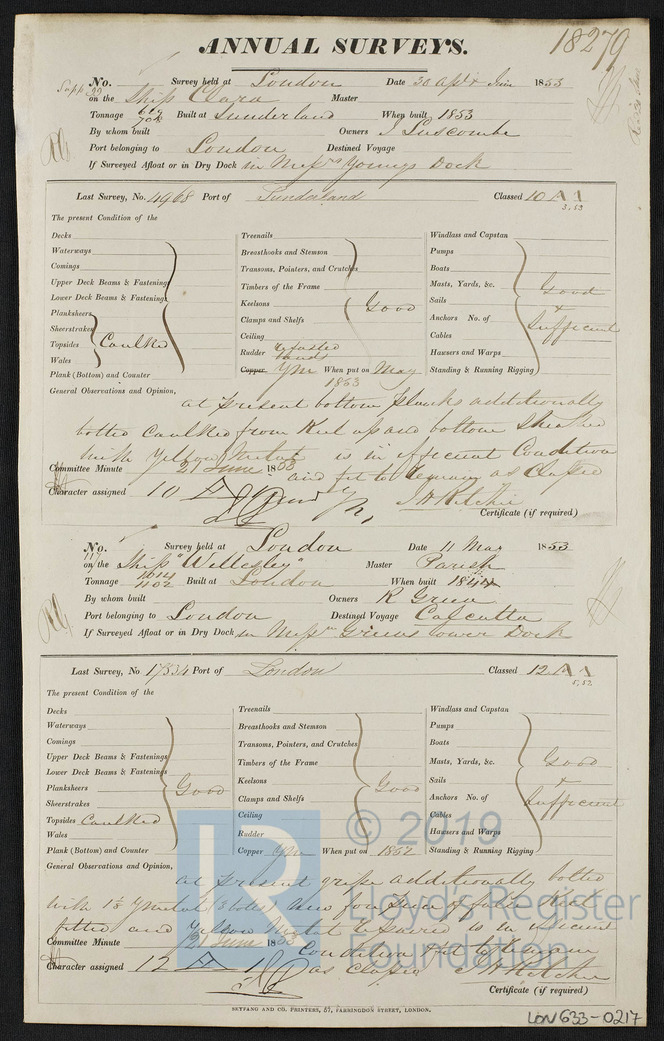 ANNUAL SURVEYS. 18279
Supp 22 No. Survey held at London Date 30 Apl & June 1853
on the Ship Clara Master
Tonnage Built at Sunderland When built 1853
By whom built Owners J Luscombe
Port belonging to London Destined Voyage
If Surveyed Afloat or in Dry Dock in Messrs Youngs Dock
Last Survey, No. 4968 Port of Sunderland Classed 10 A 1
3,53
The present Condition of the
Decks
Waterways
Comings
Upper Deck Beams & Fastenings
Lower Deck Beams & Fastenings
Planksheers
Sheerstrakes
Topsides Caulked
Wales
Plank (Bottom) and Counter
Treenails
Breasthooks and Stemson
Transoms, Pointers, and Crutches
Timbers of the Frame
Keelsons Good
Clamps and Shelfs
Ceiling
Rudder
Copper YM When put on May 1853
Windlass and Capstan
Pumps
Boats
Masts, Yards, &c. Good
Sails &
Anchors No. of Sufficient
Cables
Hawsers and Warps
Standing & Running Rigging
General Observations and Opinion,
at present bottom planks additionally
bolted caulked from Keel up and bottom Sheathed
with Yellow Metal is in efficient Condition
and fit to remain as Classed
Committee Minute 21 June 1853
Character assigned 10 A 1 J H Ritchie
Certificate (if required)
No. 117 Survey held at London Date 11 May 1853
on the Ship "Wellesley" Master Parish
Tonnage 1014 1102 Built at London When built 1844
By whom built Owners R Green
Port belonging to London Destined Voyage Calcutta
If Surveyed Afloat or in Dry Dock in Messrs Greens lower Dock
Last Survey, No. 17334 Port of London Classed 12 A 1
5,52
The present Condition of the
Decks
Waterways
Comings
Upper Deck Beams & Fastenings
Lower Deck Beams & Fastenings
Planksheers Good
Sheerstrakes
Topsides Caulked
Wales
Plank (Bottom) and Counter
Treenails
Breasthooks and Stemson
Transoms, Pointers, and Crutches
Timbers of the Frame
Keelsons Good
Clamps and Shelfs
Ceiling
Rudder
Copper YM When put on 1852
Windlass and Capstan
Pumps
Boats
Masts, Yards, &c. Good
Sails &
Anchors No. of Sufficient
Cables
Hawsers and Warps
Standing & Running Rigging
General Observations and Opinion,
at present gripe additionally bolted
with metal bolts new fore of false Keel
fitted and Yellow Metal repaired is in efficient
Condition fit to remain
as Classed
Committee Minute 21 June 1853
Character assigned 12 A 1 J H Ritchie
Certificate (if required)
© 2019
Lloyd's Register
Foundation
LR
SEYFANG AND CO. PRINTERS, 57, FARRINGDON STREET, LONDON.
LON633-0217